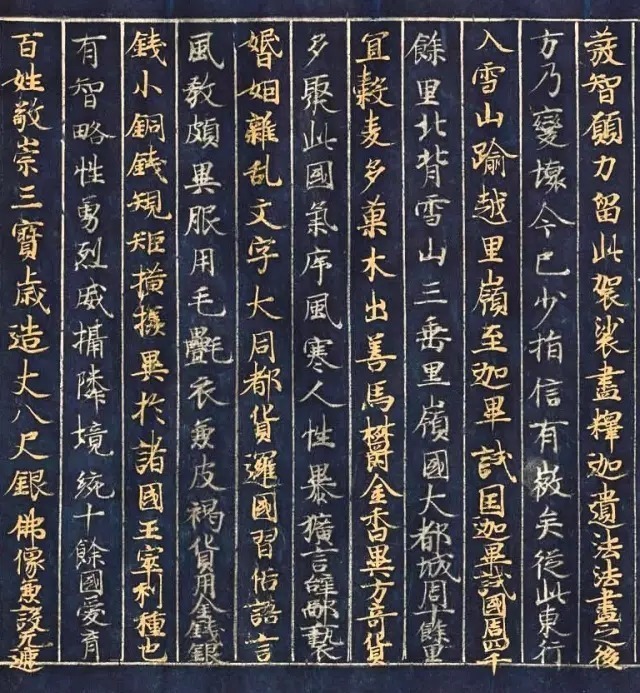 蕟智願力留此袈裟盡釋迦遺法法盡之後
方乃變壞今已少損信有徵矣從此東行
入雪山踰越里嶺至迦畢試国迦畢試國周四千
餘里北背雪山三垂里嶺國大都城周十餘里
宜穀麦多菓木出善馬欝金香異方奇貨
多聚此國氣序風寒人性暴獷言辭鄙褻
婚姻雜乱文字大同都貨邏國習俗語言
風教頗異服用毛氎衣兼皮褐貨用金錢銀
錢小銅錢規矩摸樣異於諸國王窣利種也
有智略性勇烈威懾隣境統十餘國愛育
百姓敬崇三寶歳造丈八尺銀佛像兼設无遮